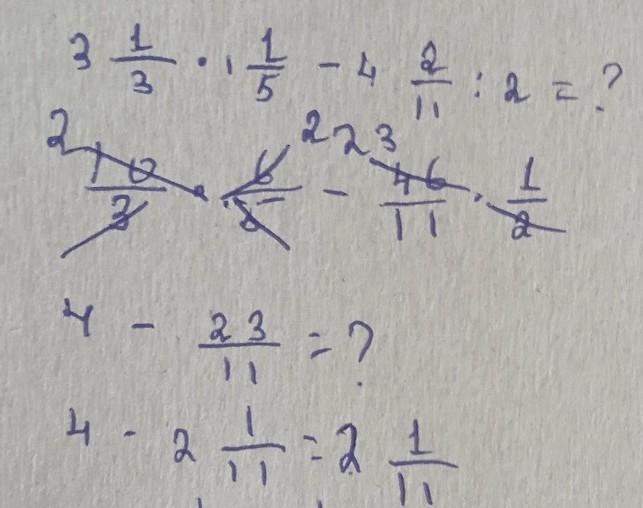 3 1/3 · 1 1/5 - 4 2/11 : 2 = ?
2 2 23
10/3 · 6/5 - 46/11 · 1/2
4 - 23/11 = ?
4 - 2 1/11 = 2 1/11